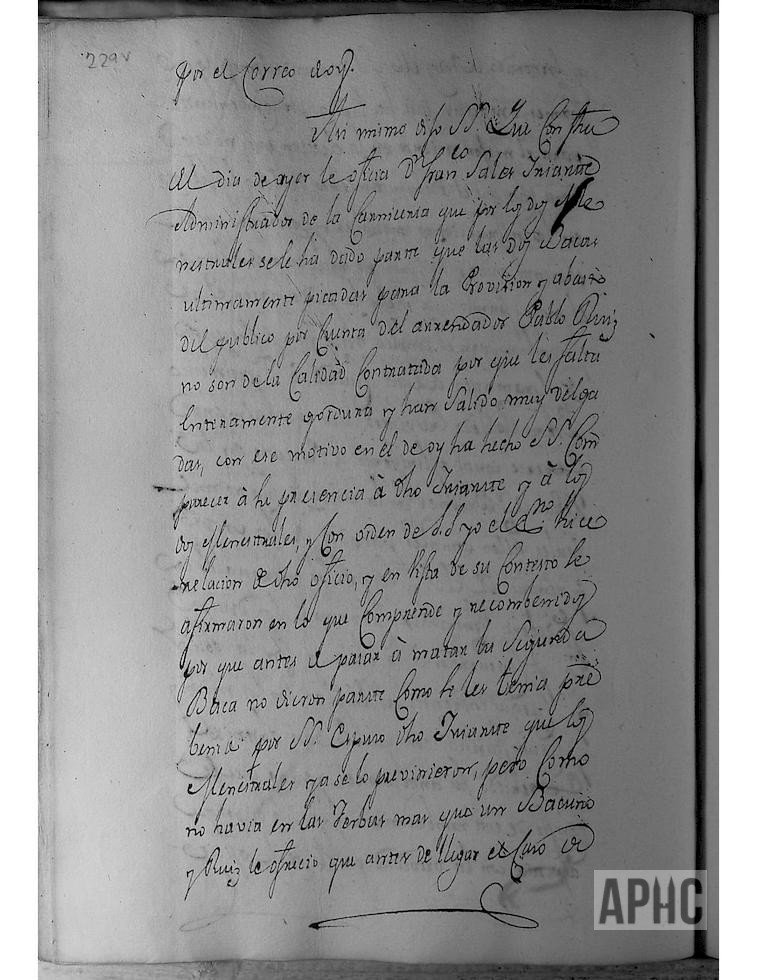 229v
por el Correo de oy.
Asi mismo dijo SS. Que con fha
del dia de ayer le oficia Dn. Franco Sales Iriarte
Administrador de la Carniceria que por los dos Me
nestrales se le ha dado parte que las dos Bacas
ultimamente picadas para la Provision y abasto
del publico por Cuenta del arrendador Pablo Ruiz
no son de la Calidad Contratada por que les falta
enteramente gordura y han Salido muy delga
das, con ese motivo en el de oy ha hecho SS. Com
parecer à su presencia à dho Iriarte y à los
dos Menestrales, y Con orden de SS yo el Sno. hice
relacion de dho oficio, y en vista de su Contesto se
afirmaron en lo que Comprende y recombenidos
por que antes de pasar à matar la Segunda
Baca no dieron parte Como se les tenia pre
benido por SS. Espuso dho Iriarte que los
Menestrales ya se lo previnieron, pero Como
no havia en las Yerbas mas que un Bacuno
y Ruiz le ofrecio que antes de llegar el Caso de
APHC